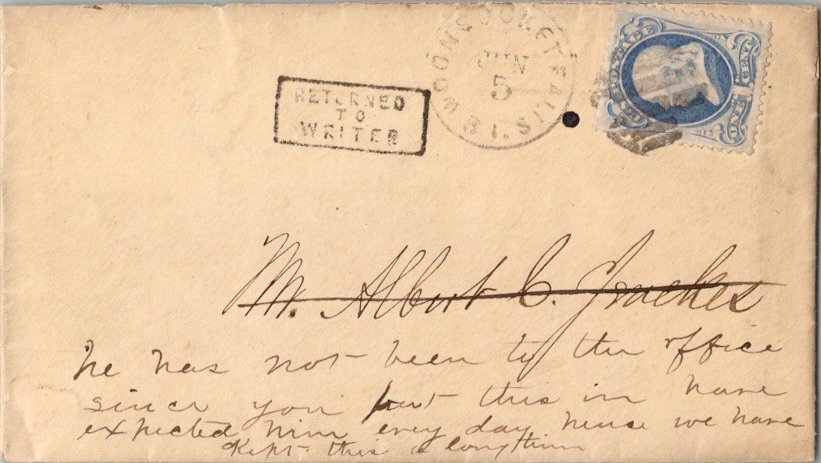 WOONSOCKET FALLS R.I.
JUN
5
RETURNED
TO
WRITER
POSTAGE
ONE CENT
Mr. Albert C.
he has not been to the office
since you put this in have
expected him every day hense we have
Kept this a longthim